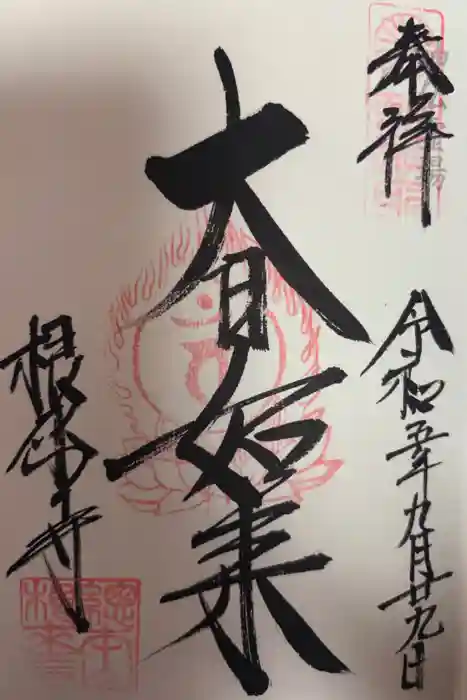 奉拝
令和五年九月廿九日
大日如来
根本寺